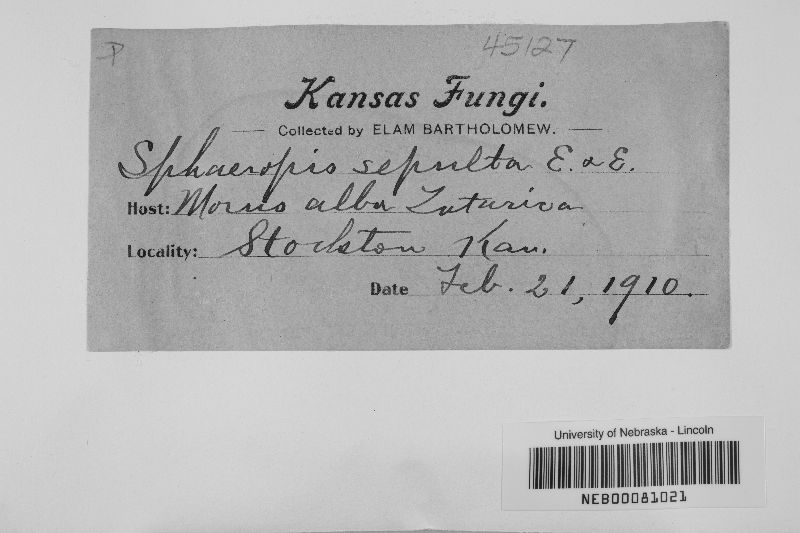 P
45127
Kansas Fungi.
Collected by ELAM BARTHOLOMEW.
Sphaeropsis sepulta E. & E.
Host: Morus alba Tatarica
Locality: Stockton Kan.
Date Feb. 21, 1910.
University of Nebraska - Lincoln
NEB00081021